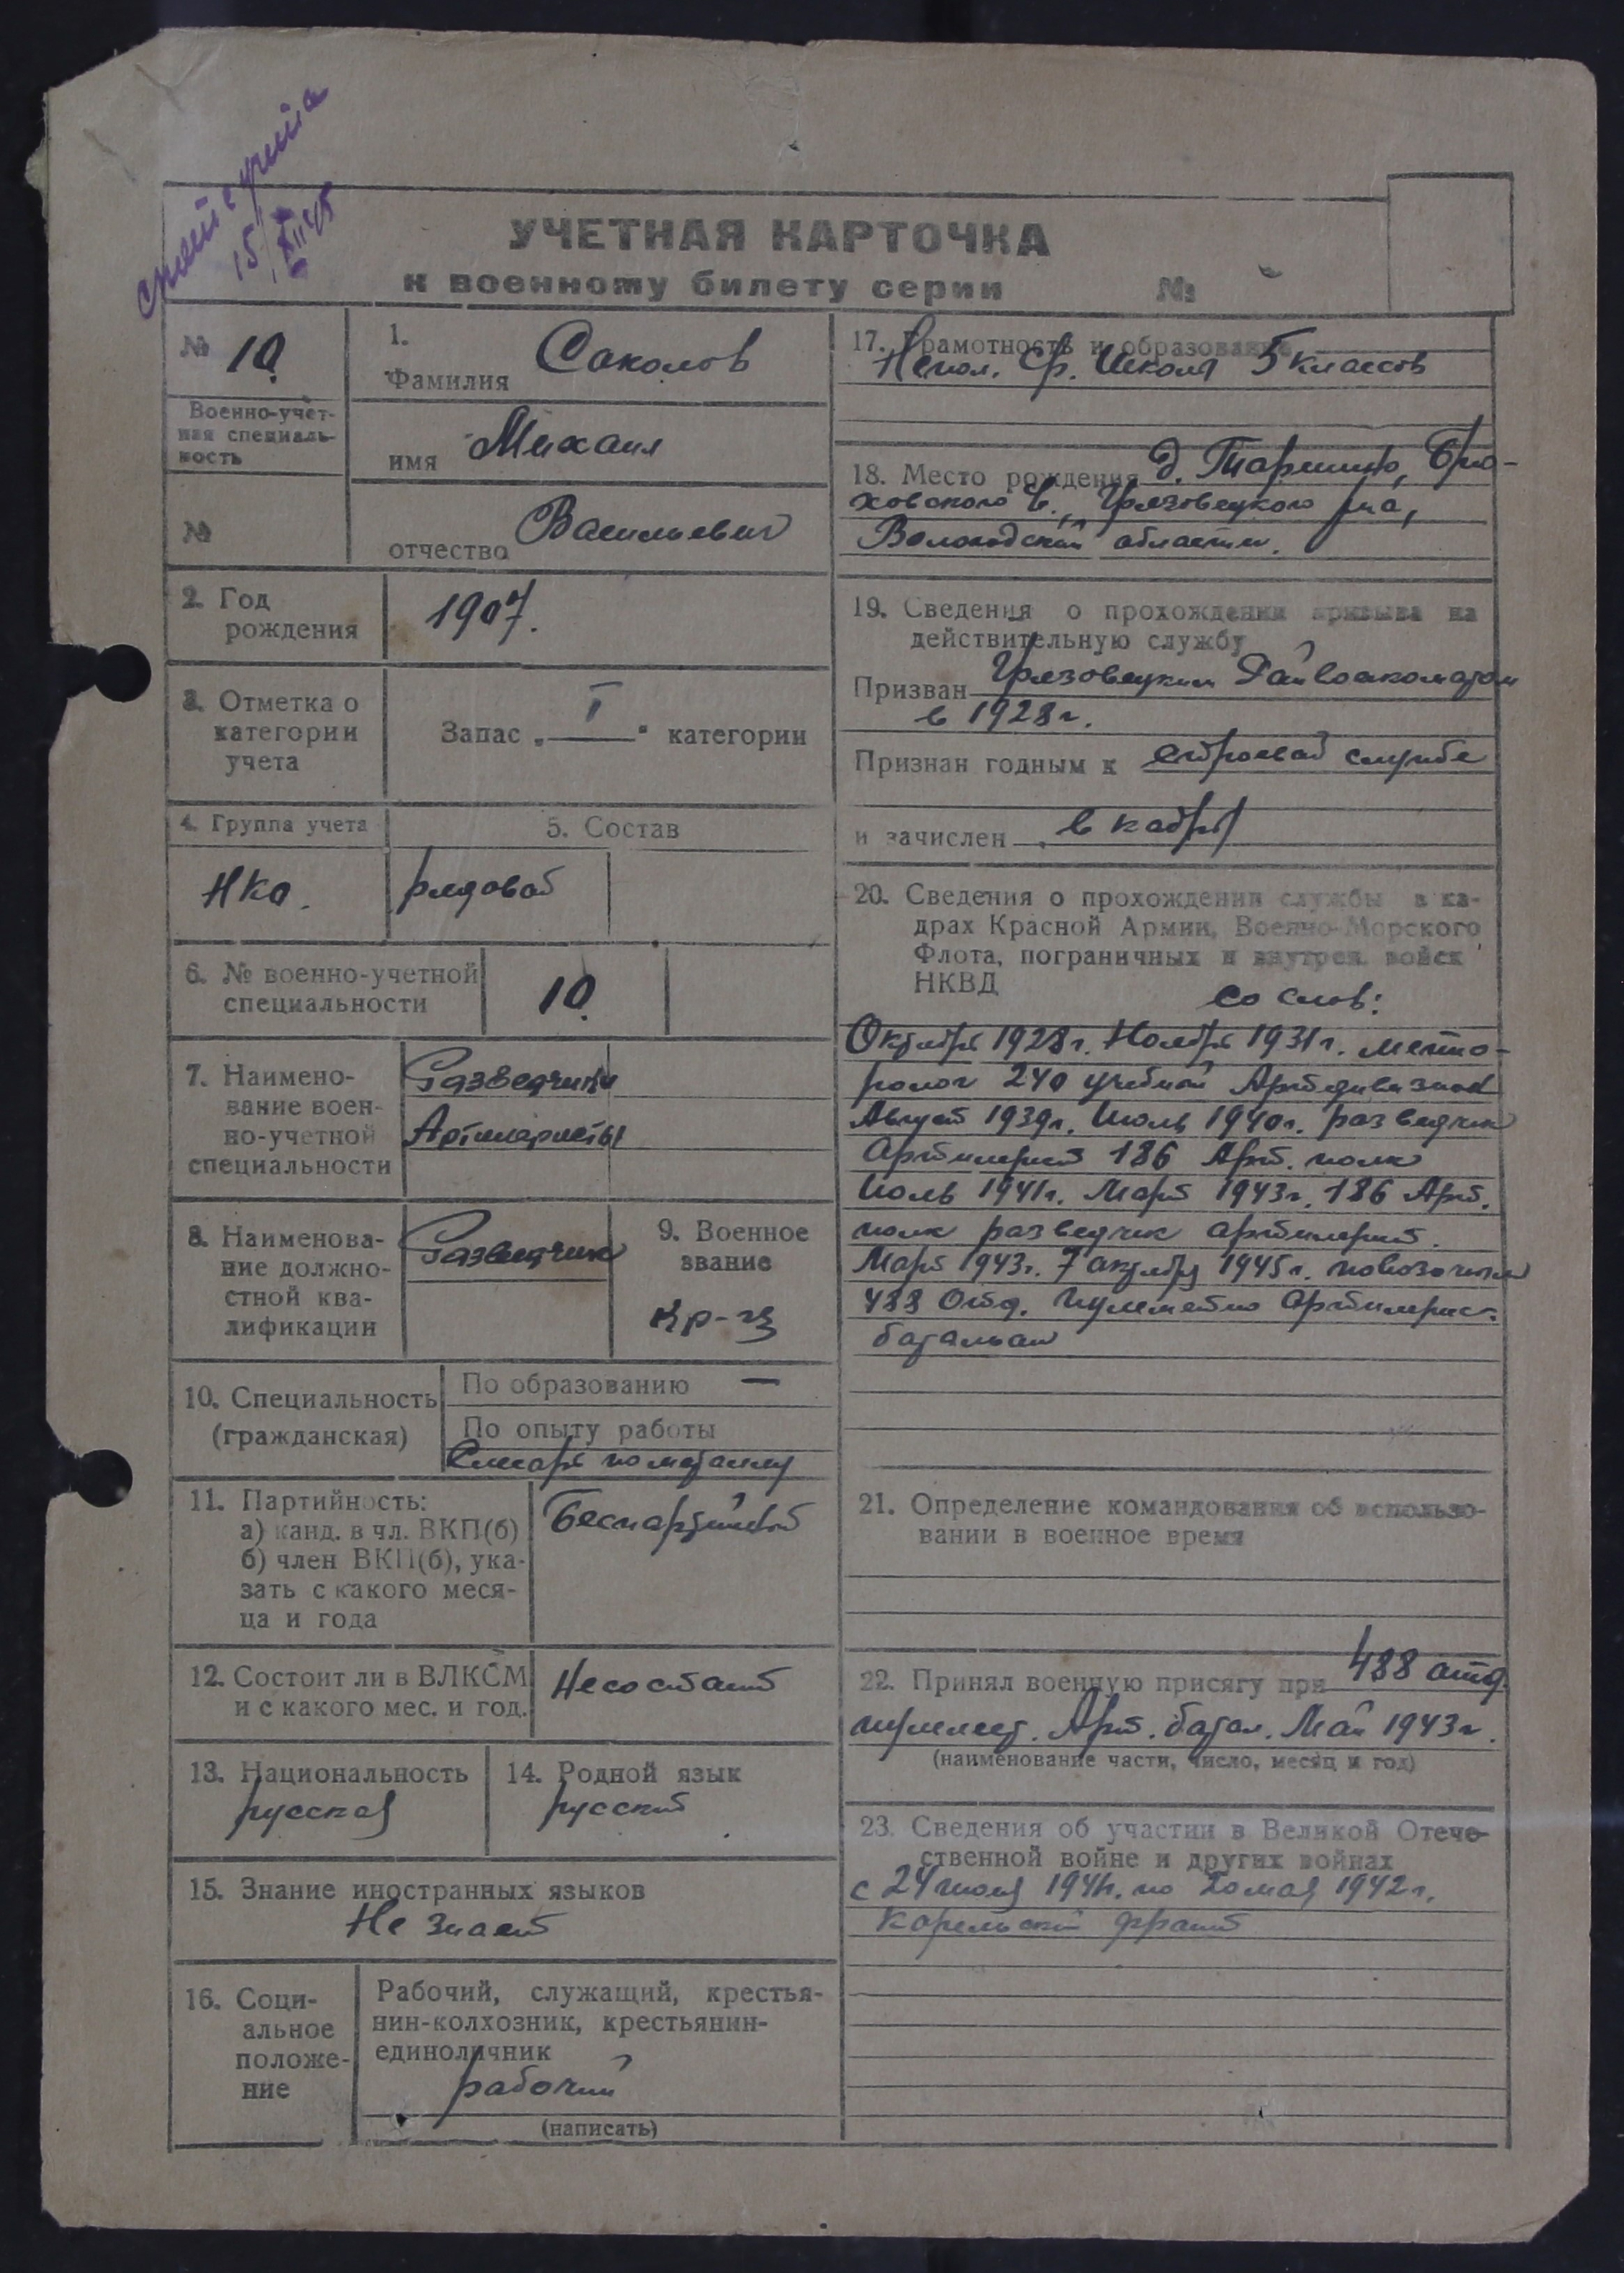 снят с учета
15/XII 45
УЧЕТНАЯ КАРТОЧКА
к военному билету серии №
№ 10.
Военно-учет-
ная специаль-
ность
№
1.
Фамилия Соколов
имя Михаил
отчество Васильевич
2. Год
рождения
1907.
3. Отметка о
категории
учета
Запас „ I " категории
4. Группа учета
5. Состав
НКО.
рядовой
6. № военно-учетной
специальности
10.
7. Наимено-
вание воен-
но-учетной
специальности
Разведчики
Артилеристы
8. Наименова-
ние должно-
стной ква-
лификации
Разведчик
9. Военное
звание
Кр-ец
10. Специальность
(гражданская)
По образованию —
По опыту работы
Слесарь по металлу
11. Партийность:
а) канд. в чл. ВКП(б)
б) член ВКП(б), ука-
зать с какого меся-
ца и года
Беспартийный
12. Состоит ли в ВЛКСМ
и с какого мес. и год.
Не состоит
13. Национальность
русский
14. Родной язык
русский
15. Знание иностранных языков
Не знает
16. Соци-
альное
положе-
ние
Рабочий, служащий, крестья-
нин-колхозник, крестьянин-
единоличник
рабочий
(написать)
17. Грамотность и образование
Непол. Ср. Школа 5 классов
18. Место рождения д.
Грязовецкого р-на,
Вологодской области.
19. Сведения о прохождении призыва на
действительную службу
Призван Грязовецким Райвоенкоматом
в 1928 г.
Признан годным к строевой службе
и зачислен в кадры
20. Сведения о прохождении службы в ка-
драх Красной Армии, Военно-Морского
Флота, пограничных и внутрен. войск
НКВД
со слов:
Октябрь 1928 г. Ноябрь 1931 г. метио-
ролог 240 учебной Артдивизион
Август 1939 г. Июль 1940 г. разведчик
Артилерист 186 Арт. полк
Июль 1941 г. Март 1943 г. 186 Арт.
полк разведчик артилерист.
Март 1943 г. 7 октябрь 1945 г. повозочный
488 Отд. Пулеметно Артилерис.
батальон
21. Определение командования об использо-
вании в военное время
22. Принял военную присягу при 488 отд.
пулемет. Арт. батал. Май 1943 г.
(наименование части, число, месяц и год)
23. Сведения об участии в Великой Отече-
ственной войне и других войнах
с 24 июля 1941 г. по 20 мая 1942 г.
Карельский фронт